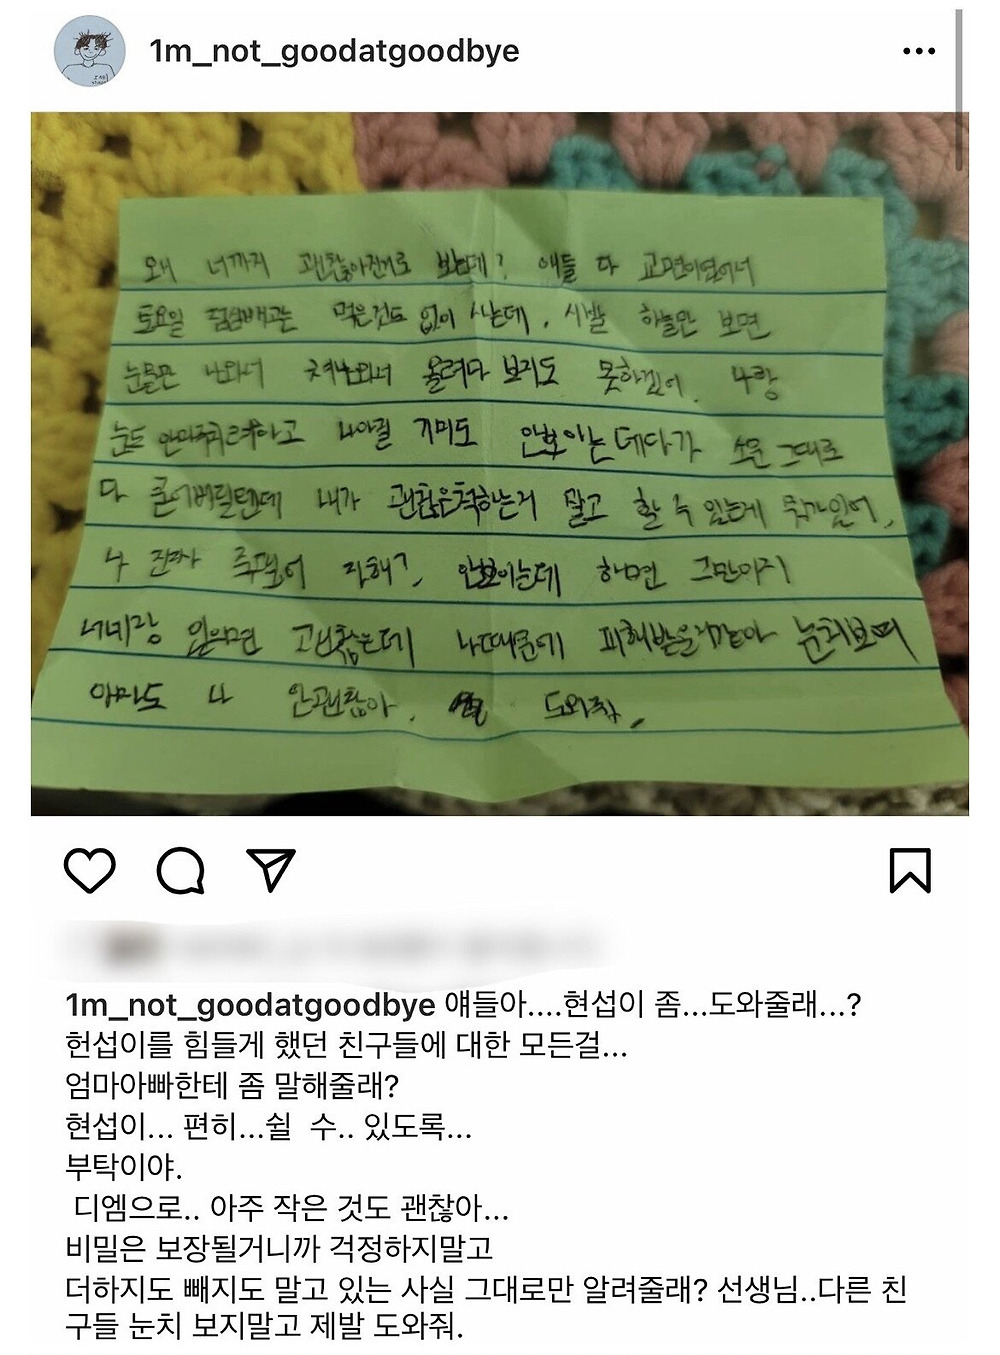 1m_not_goodatgoodbye
왜 너까지 괜찮아진거로 보는데? 얘들 다 교면이였어서
토요일 점심빼고는 먹은것도 없이 사는데, 시발 하늘만 보면
눈물만 나와서 쳐나와서 올려다 보지도 못하겠어. 나랑
눈도 안마주치려하고 나아질 기미도 안보이는데다가 소문 그대로
다 믿어버릴텐데 내가 괜찮은척하는거 말고 할 수 있는게 뭐가있어,
나 진짜 죽겠어 자해?, 안보이는데 하면 그만이지
너네랑 있으면 괜찮은데 나때문에 피해받을거같아 눈치보여
아마도 나 안괜찮아. 도와줘,
1m_not_goodatgoodbye 얘들아....현섭이 좀...도와줄래...?
헌섭이를 힘들게 했던 친구들에 대한 모든걸...
엄마아빠한테 좀 말해줄래?
현섭이... 편히...쉴 수.. 있도록...
부탁이야.
디엠으로.. 아주 작은 것도 괜찮아...
비밀은 보장될거니까 걱정하지말고
더하지도 빼지도 말고 있는 사실 그대로만 알려줄래? 선생님..다른 친
구들 눈치 보지말고 제발 도와줘.